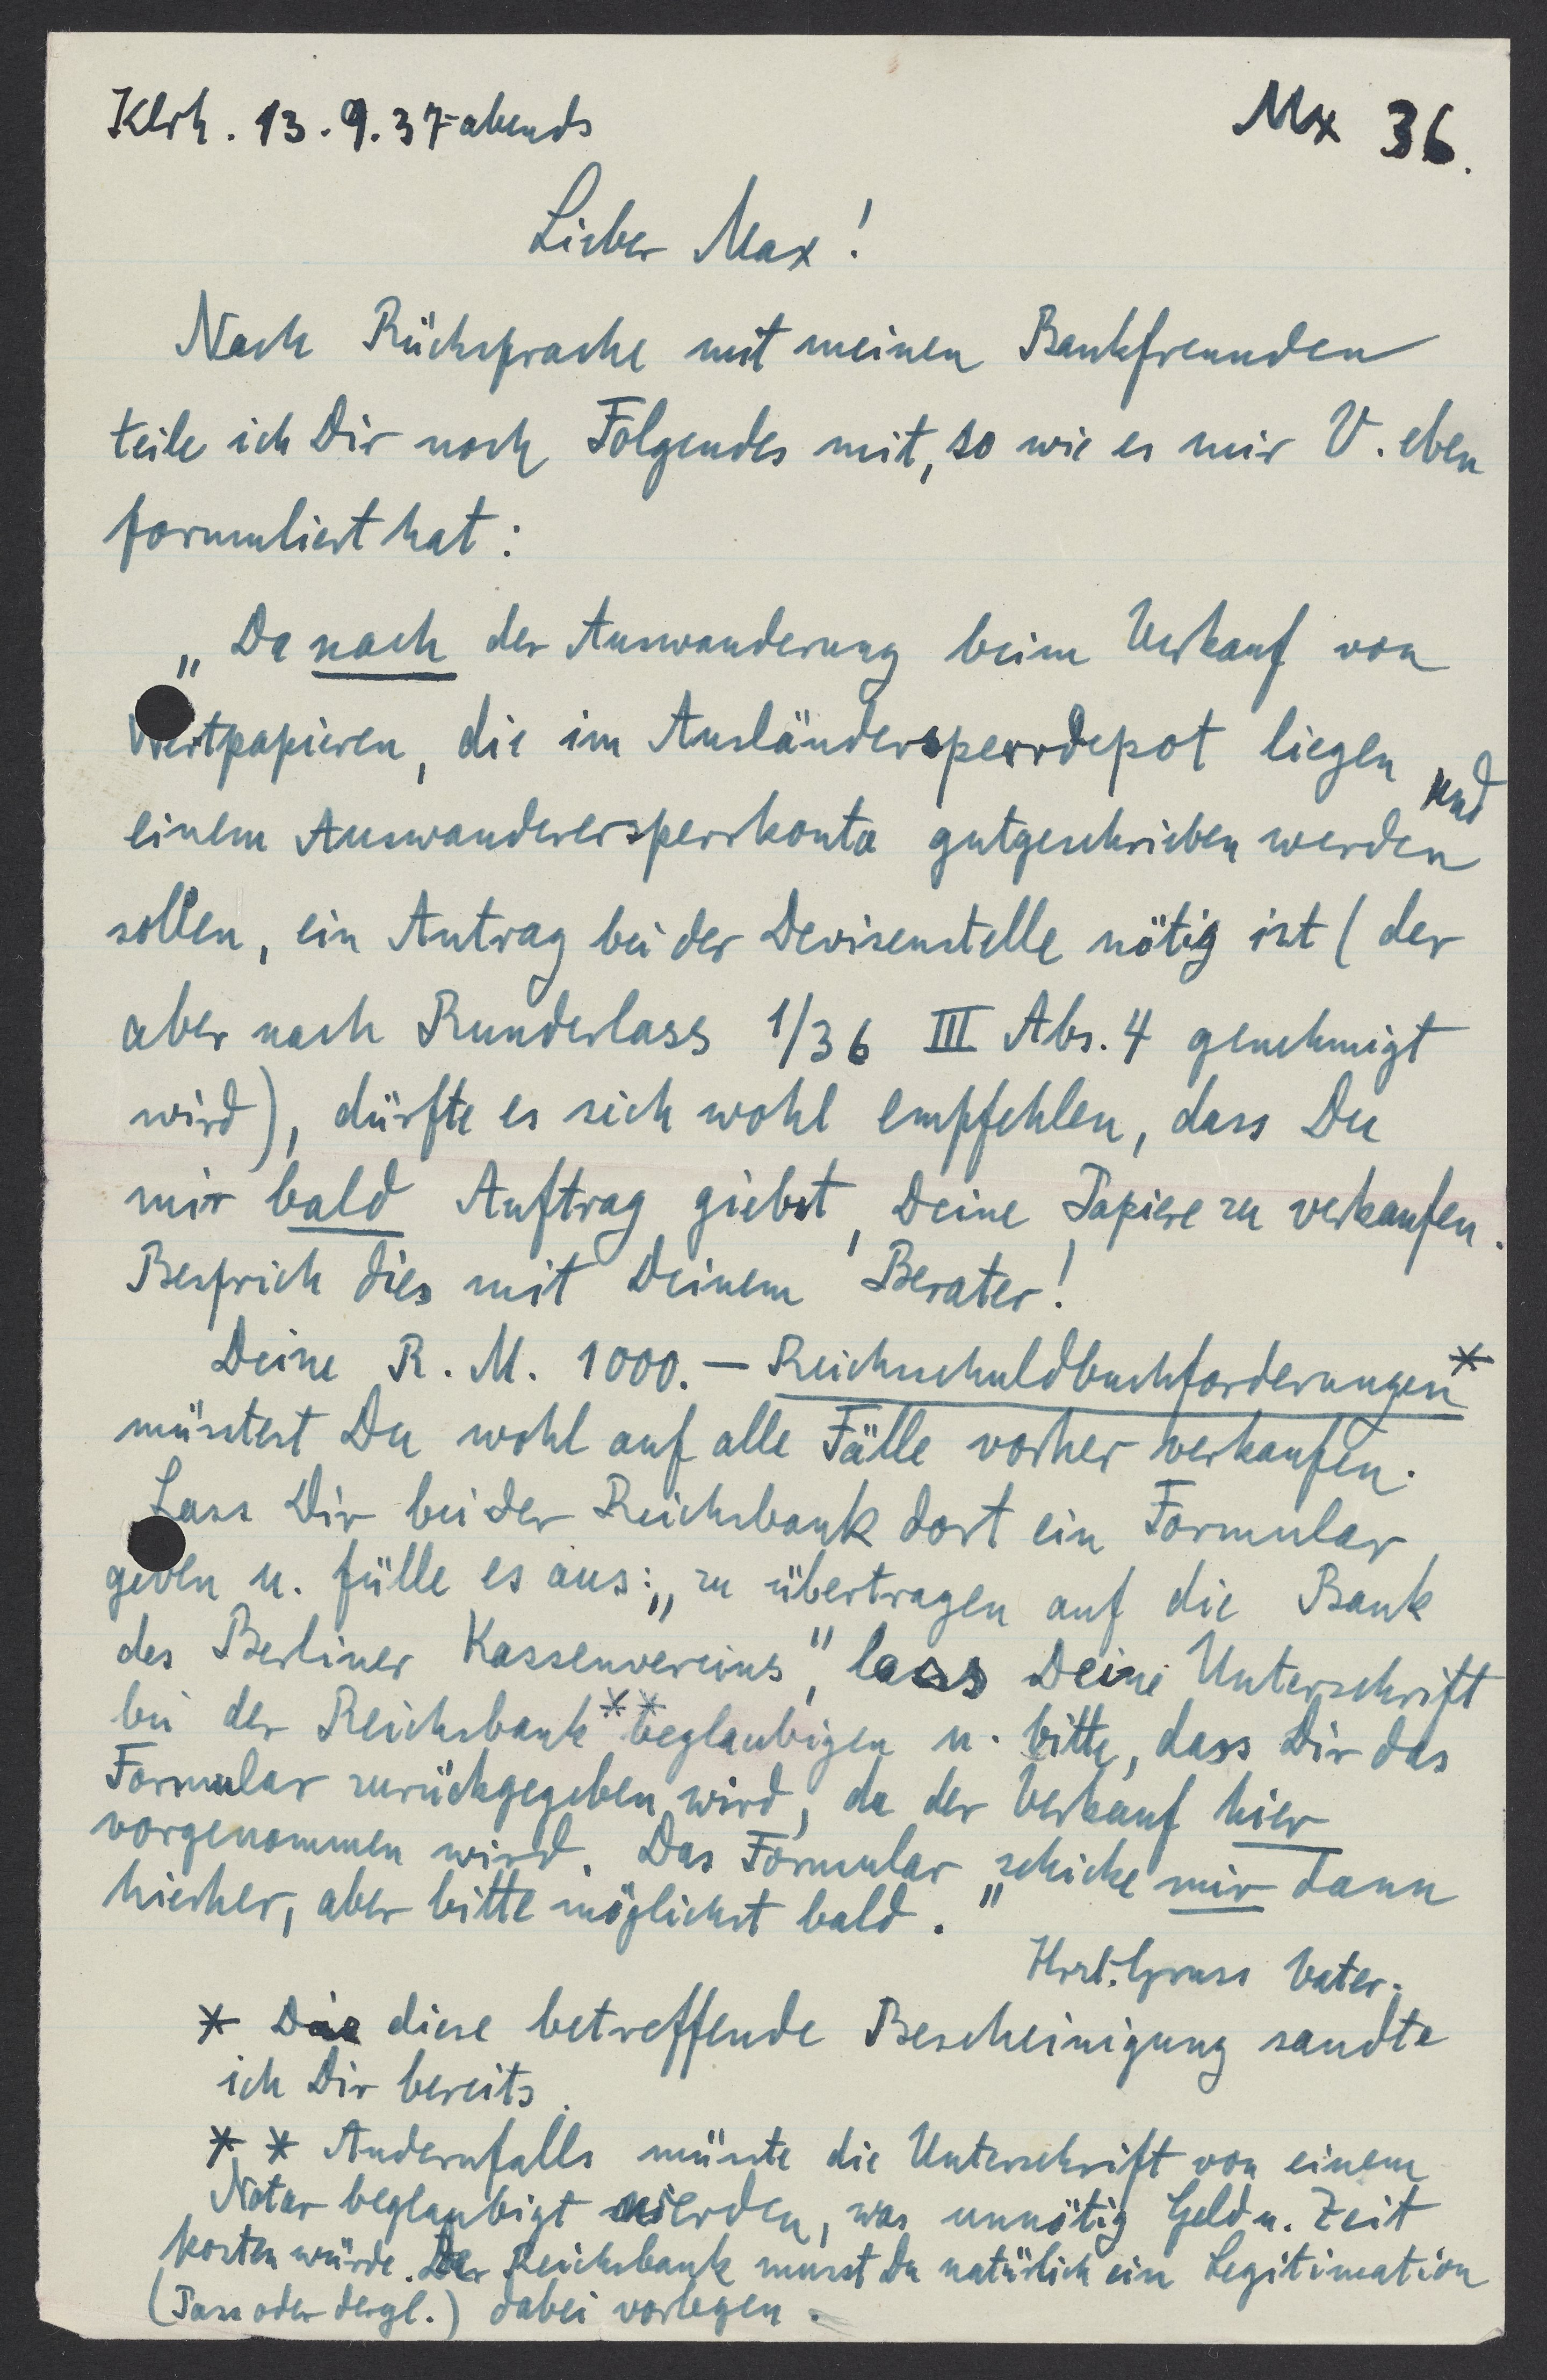 Klrh. 13.9.37 abends
Mx 36.
Lieber Max!
Nach Rücksprache mit meinen Bankfreunden
teile ich Dir noch Folgendes mit, so wie es mir V. eben
formuliert hat:
„Da nach der Auswanderung beim Verkauf von
Wertpapieren, die im Ausländersperrdepot liegen und
einem Auswanderersperrkonto gutgeschrieben werden
sollen, ein Antrag bei der Devisenstelle nötig ist (der
aber nach Runderlass 1/36 III Abs. 4 genehmigt
wird), dürfte es sich wohl empfehlen, dass Du
mir bald Auftrag giebst, Deine Papiere zu verkaufen.
Besprich dies mit Deinem Berater!
Deine R.M. 1000.— Reichsschuldbuchforderungen*
müsstest Du wohl auf alle Fälle vorher verkaufen.
Lass Dir bei der Reichsbank dort ein Formular
geben u. fülle es aus: „zu übertragen auf die Bank
des Berliner Kassenvereins", lass Deine Unterschrift
bei der Reichsbank** beglaubigen u. bitte, dass Dir das
Formular zurückgegeben wird, da der Verkauf hier
vorgenommen wird. Das Formular schicke mir dann
hierher, aber bitte möglichst bald."
Hrzl. Gruss Vater.
* Die diese betreffende Bescheinigung sandte
ich Dir bereits.
** Andernfalls müsste die Unterschrift von einem
Notar beglaubigt werden, was unnötig Geld u. Zeit
kosten würde. Der Reichsbank musst Du natürlich ein Legitimation
(Pass oder dergl.) dabei vorlegen.